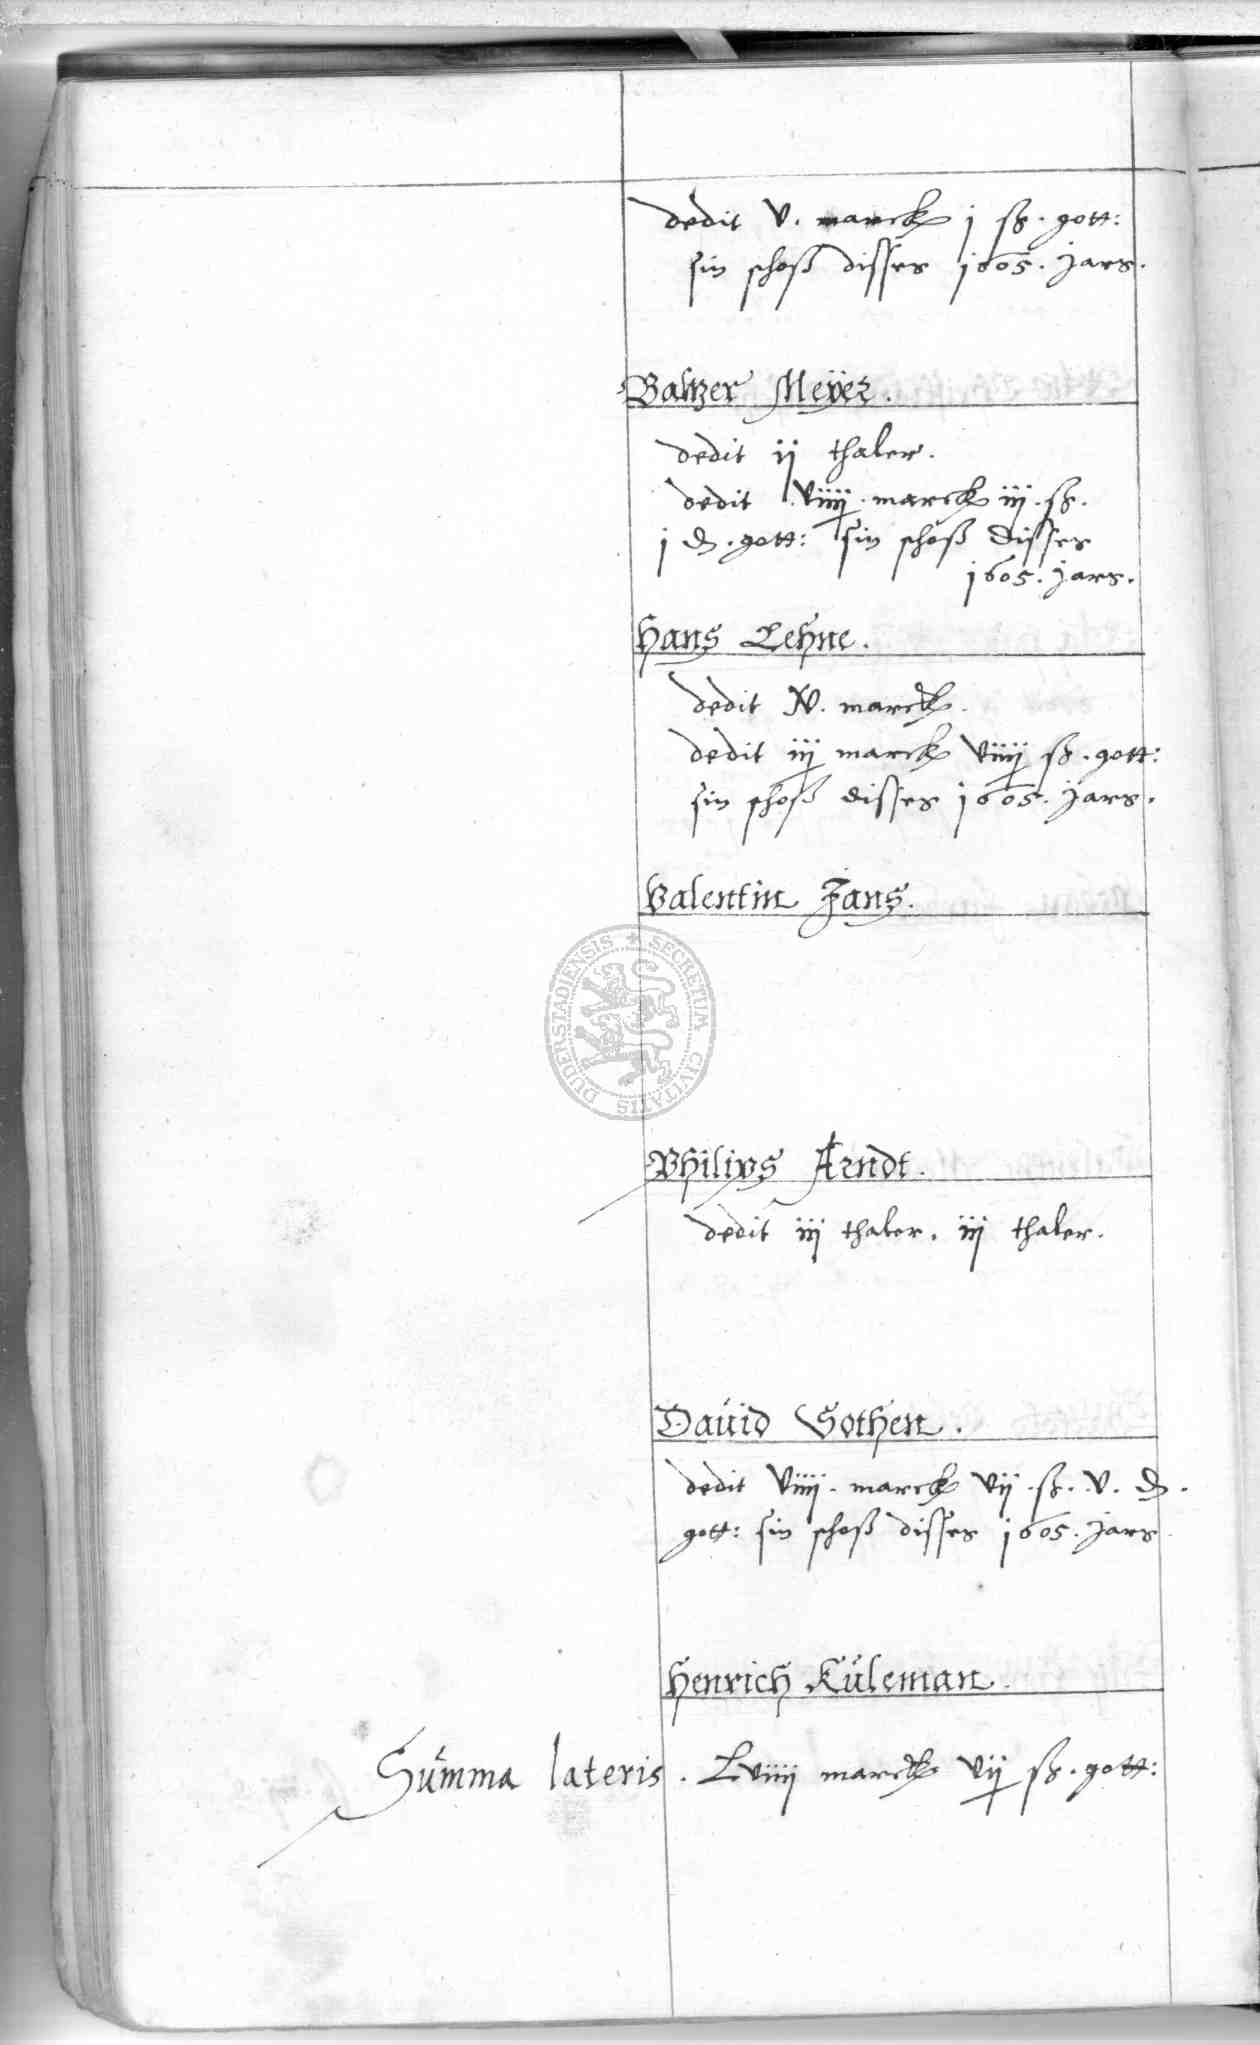 dedit v. marck j sh. gott:
sin schoß disses 1605. Jars.
Baltzer Meÿer.
dedit ij thaler.
dedit viiij. marck iij. sh.
j d. gott: sin schoß disses
1605. Jars.
Hans Lehne.
dedit x. marck.
dedit iij marck viiij sh. gott:
sin schoß disses 1605. Jars.
Valentin Jans.
DUDERSTADIENSIS SECRETUM CIVITATIS
Philips Arndt.
dedit iij thaler. iij thaler.
Dauid Gothen.
dedit viiij. marck vij. sh. v. d.
gott: sin schoß disses 1605. Jars
Henrich Kuleman.
Summa lateris. Lviiij marck vij sh. gott: